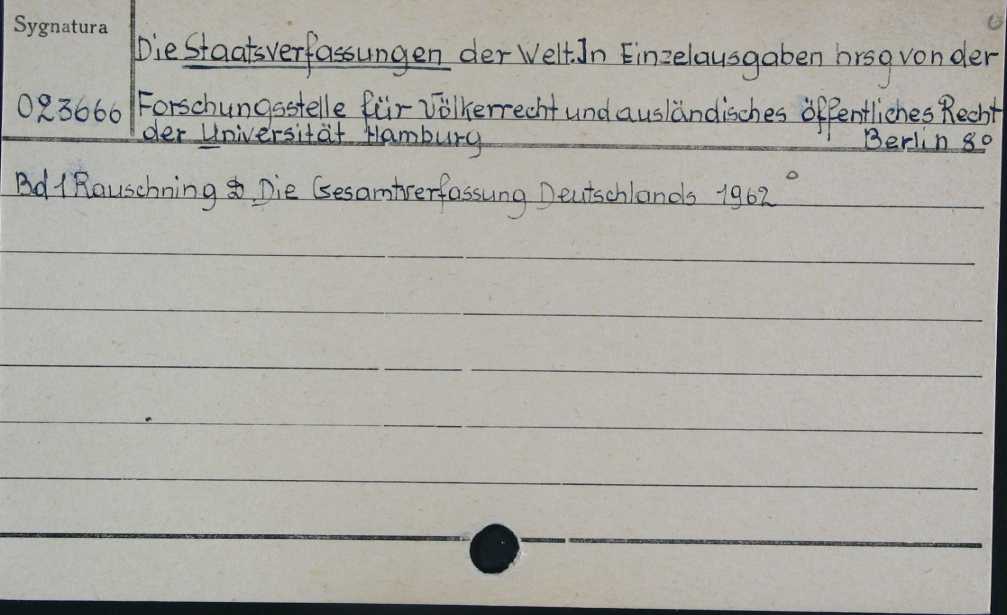 Sygnatura
Die Staatsverfassungen der Welt. In Einzelausgaben hrsg von der
023666 Forschungsstelle für Völkerrecht und ausländisches öffentliches Recht
der Universität Hamburg Berlin 8°
Bd 1 Rauschning D Die Gesamtverfassung Deutschlands 1962 °